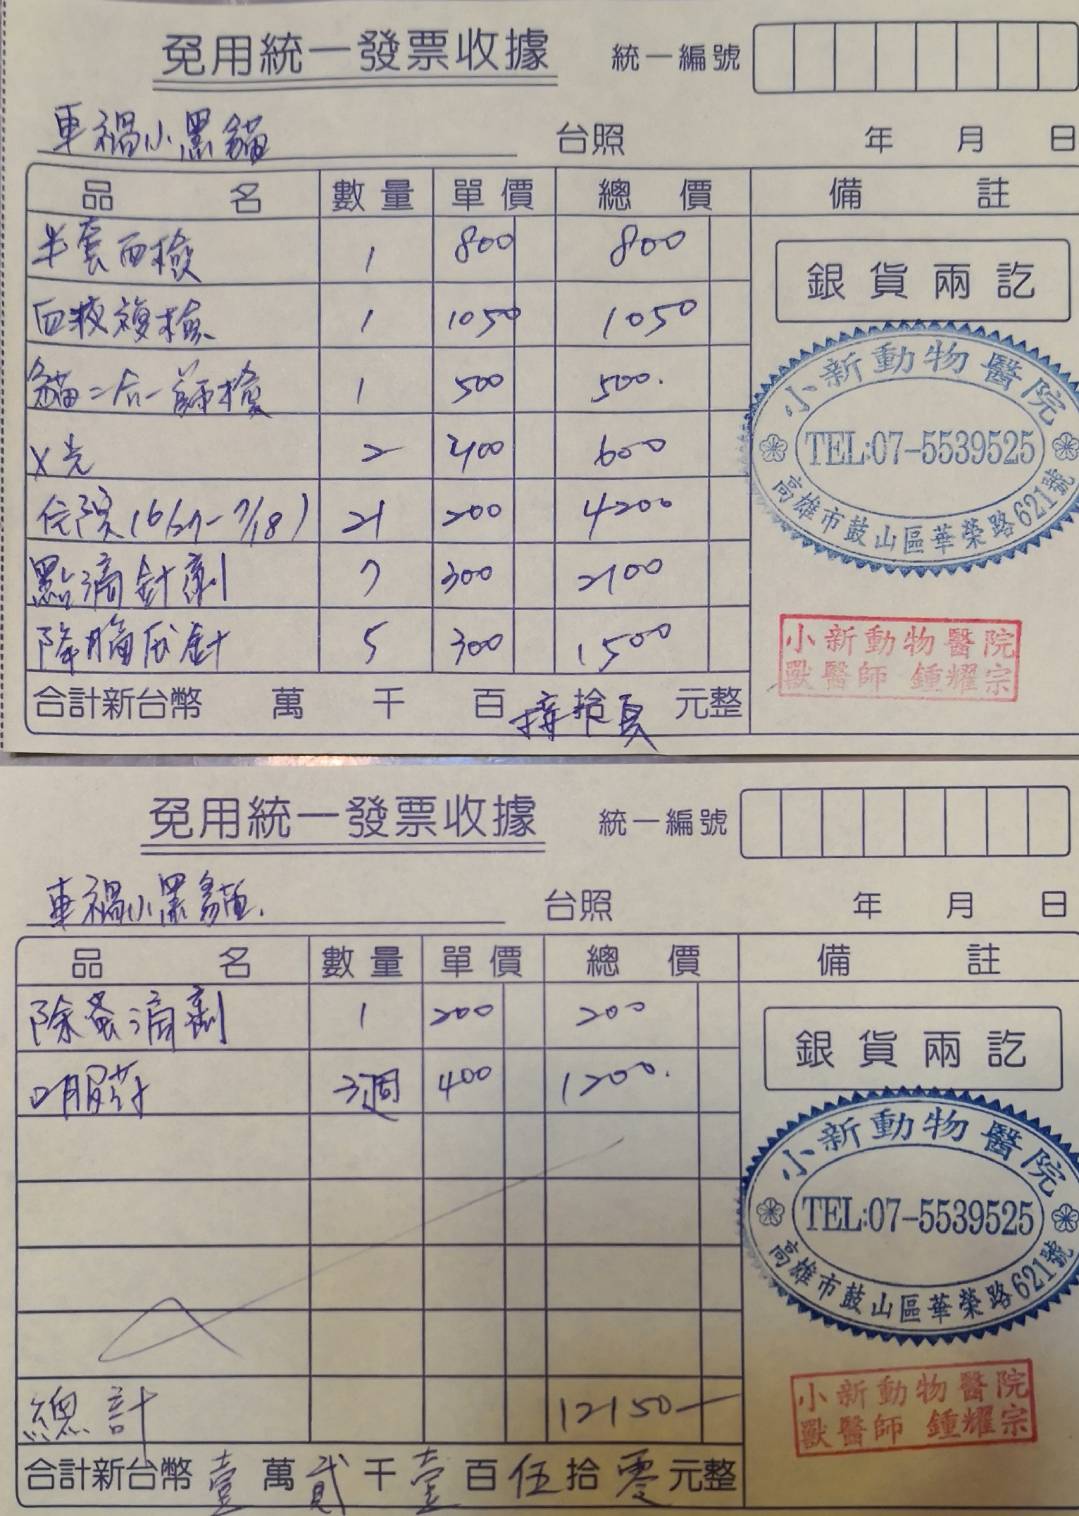 免用統一發票收據 統一編號
車禍小黑貓 台照 年 月 日
品名 數量 單價 總價 備註
半套血檢 1 800 800
血液複檢 1 1050 1050
貓二合一篩檢 1 500 500.
X光 2 400 600
住院(6/27-7/18) 21 200 4200
點滴針劑 7 300 2100
降腦压針 5 300 1500
合計新台幣 萬 千 百 接拾頁 元整
銀貨兩訖
小新動物醫院
TEL:07-5539525
高雄市鼓山區華榮路621號
小新動物醫院
獸醫師 鍾耀宗
免用統一發票收據 統一編號
車禍小黑貓. 台照 年 月 日
品名 數量 單價 總價 備註
除蚤滴劑 1 200 200
口服葯 3週 400 1200.
總計 12150-
合計新台幣 壹萬貳千壹百伍拾零元整
銀貨兩訖
小新動物醫院
TEL:07-5539525
高雄市鼓山區華榮路621號
小新動物醫院
獸醫師 鍾耀宗